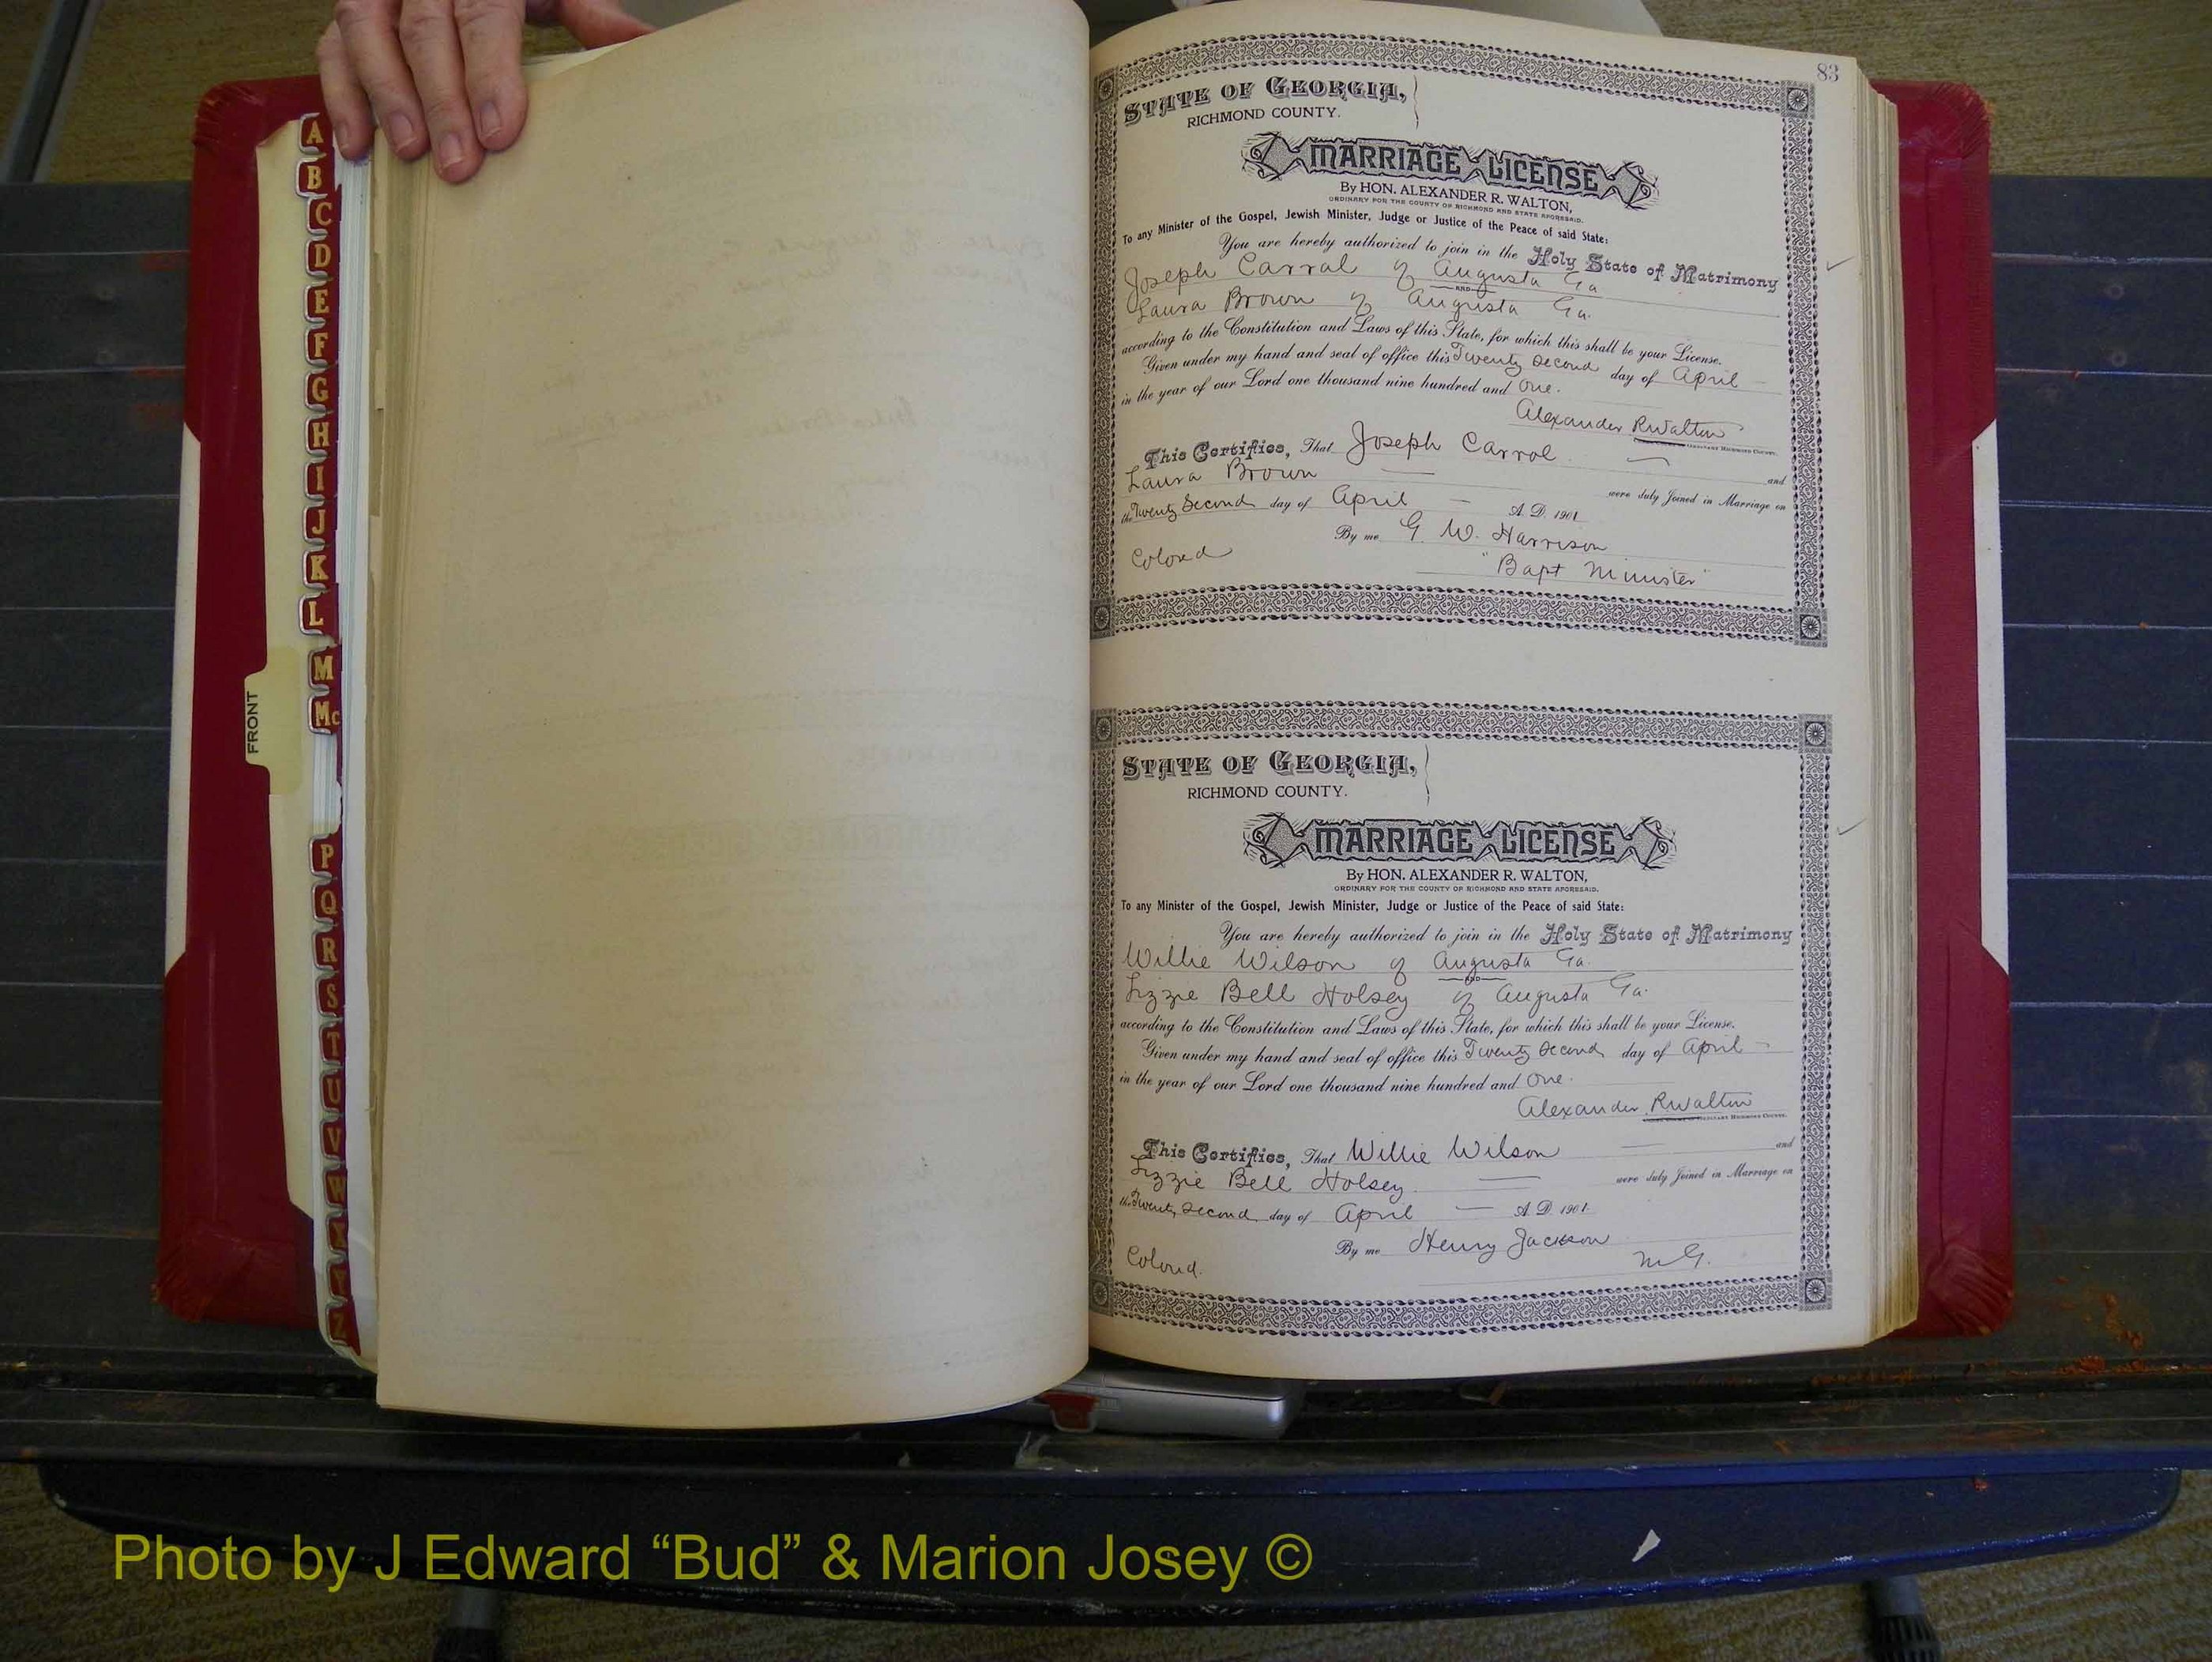 83
STATE OF GEORGIA,
RICHMOND COUNTY.
MARRIAGE LICENSE
By HON. ALEXANDER R. WALTON,
ORDINARY FOR THE COUNTY OF RICHMOND AND STATE AFORESAID.
To any Minister of the Gospel, Jewish Minister, Judge or Justice of the Peace of said State:
You are hereby authorized to join in the Holy State of Matrimony
Joseph Carral of Augusta Ga
AND
Laura Brown of Augusta Ga.
according to the Constitution and Laws of this State, for which this shall be your License.
Given under my hand and seal of office this Twenty Second day of April
in the year of our Lord one thousand nine hundred and One.
Alexander R Walton
ORDINARY RICHMOND COUNTY.
This Certifies, That Joseph Carrol and
Laura Brown were duly Joined in Marriage on
the Twenty Second day of April A. D. 1901
By me G. W. Harrison
Colored "Bapt Minister"
STATE OF GEORGIA,
RICHMOND COUNTY.
MARRIAGE LICENSE
By HON. ALEXANDER R. WALTON,
ORDINARY FOR THE COUNTY OF RICHMOND AND STATE AFORESAID.
To any Minister of the Gospel, Jewish Minister, Judge or Justice of the Peace of said State:
You are hereby authorized to join in the Holy State of Matrimony
Willie Wilson of Augusta Ga.
AND
Lizzie Bell Holsey of Augusta Ga.
according to the Constitution and Laws of this State, for which this shall be your License.
Given under my hand and seal of office this Twenty Second day of April
in the year of our Lord one thousand nine hundred and One.
Alexander R Walton
ORDINARY RICHMOND COUNTY.
This Certifies, That Willie Wilson and
Lizzie Bell Holsey were duly Joined in Marriage on
the Twenty Second day of April A. D. 1901.
By me Henry Jackson
Colored. M. G.
A
B
C
D
E
F
G
H
I
J
K
L
M
Mc
FRONT
P
Q
R
S
T
U
V
W
X
Y
Z
Photo by J Edward “Bud” & Marion Josey ©